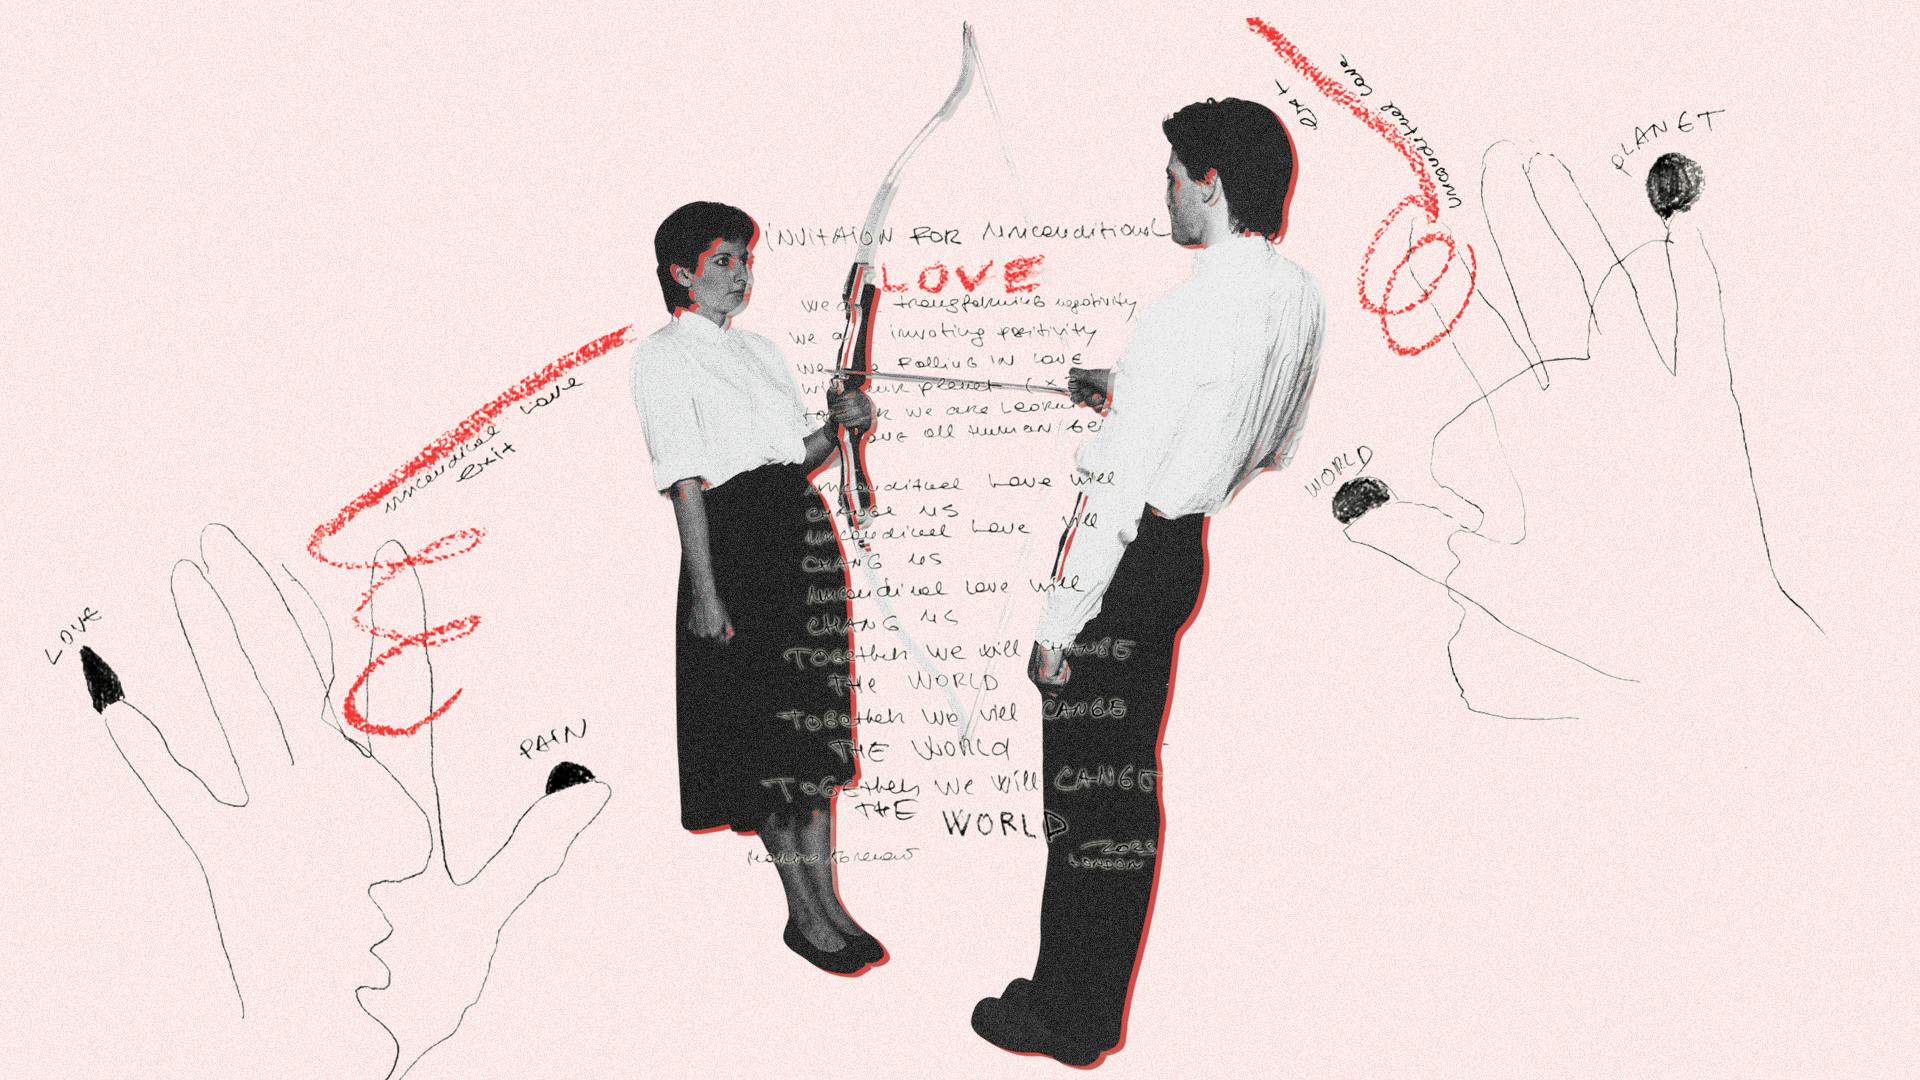 INVITAION FOR Unconditional
LOVE
We a transforming negativity
we a invoting positivity
we e Falling IN LOVE
wi our planet (x
to k we are Learni
ove all Human bei
unconditual Love will
CHANGE US
uncondical Love will
CHANG US
Uncondinal Love will
CHANG US
TOGether We will CHANGE
THE WORLD
TOGether We will CANGE
THE WORLd
TOGEther We Will CANGE
THE WORLD
LONDON
uncondical Love
exit
LOVE
PAIN
exit
unconditual Love
PLANET
WORLD